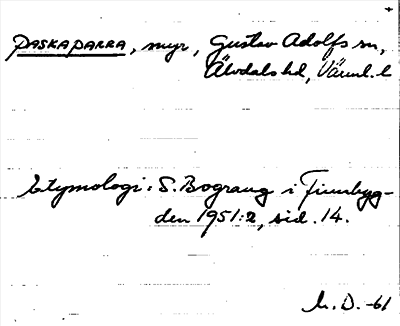 PASKAPARRA, myr, Gustav Adolfs sn,
Älvdals hd, Värml. l
Etymologi: S. Bograng i Finnbyg-
den 1951:2, sid. 14.
M.D. -61